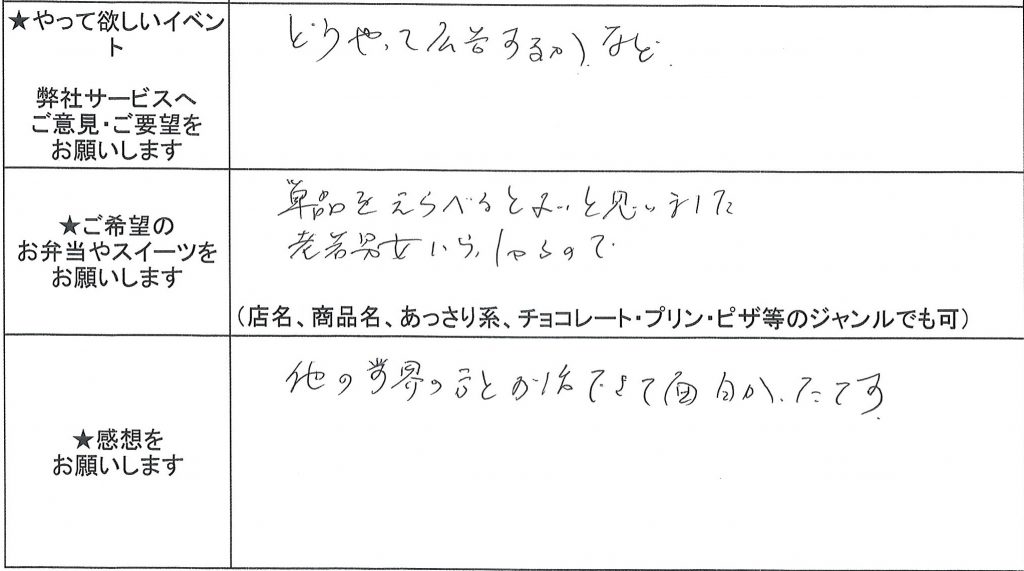 ★やって欲しいイベン
ト
弊社サービスへ
ご意見・ご要望を
お願いします
どうやって広告するか、など
★ご希望の
お弁当やスイーツを
お願いします
単品をえらべるとよいと思いました
老若男女いらっしゃるので
(店名、商品名、あっさり系、チョコレート・プリン・ピザ等のジャンルでも可)
★感想を
お願いします
他の業界のことが
できて面白かったです